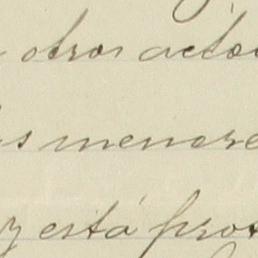 otros acto
menore
está pro